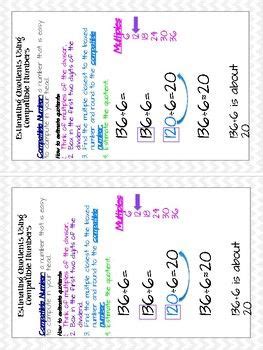 Estimating Quotients Using
Compatible Numbers
Compatible Number: a number that is easy
to compute in your head.
How to estimate quotients:
1. Think of multiples of the divisor.
2. Box in the first two digits of the
dividend.
3. Find the multiple closest to the boxed
number and round to the compatible
number.
4. Estimate the quotient.
Multiples
6
12
18
24
30
36
136÷6=
136÷6=
120÷6=20
136÷6≈20
136÷6 is about
20
Estimating Quotients Using
Compatible Numbers
Compatible Number: a number that is easy
to compute in your head.
How to estimate quotients:
1. Think of multiples of the divisor.
2. Box in the first two digits of the
dividend.
3. Find the multiple closest to the boxed
number and round to the compatible
number.
4. Estimate the quotient.
Multiples
6
12
18
24
30
36
136÷6=
136÷6=
120÷6=20
136÷6≈20
136÷6 is about
20